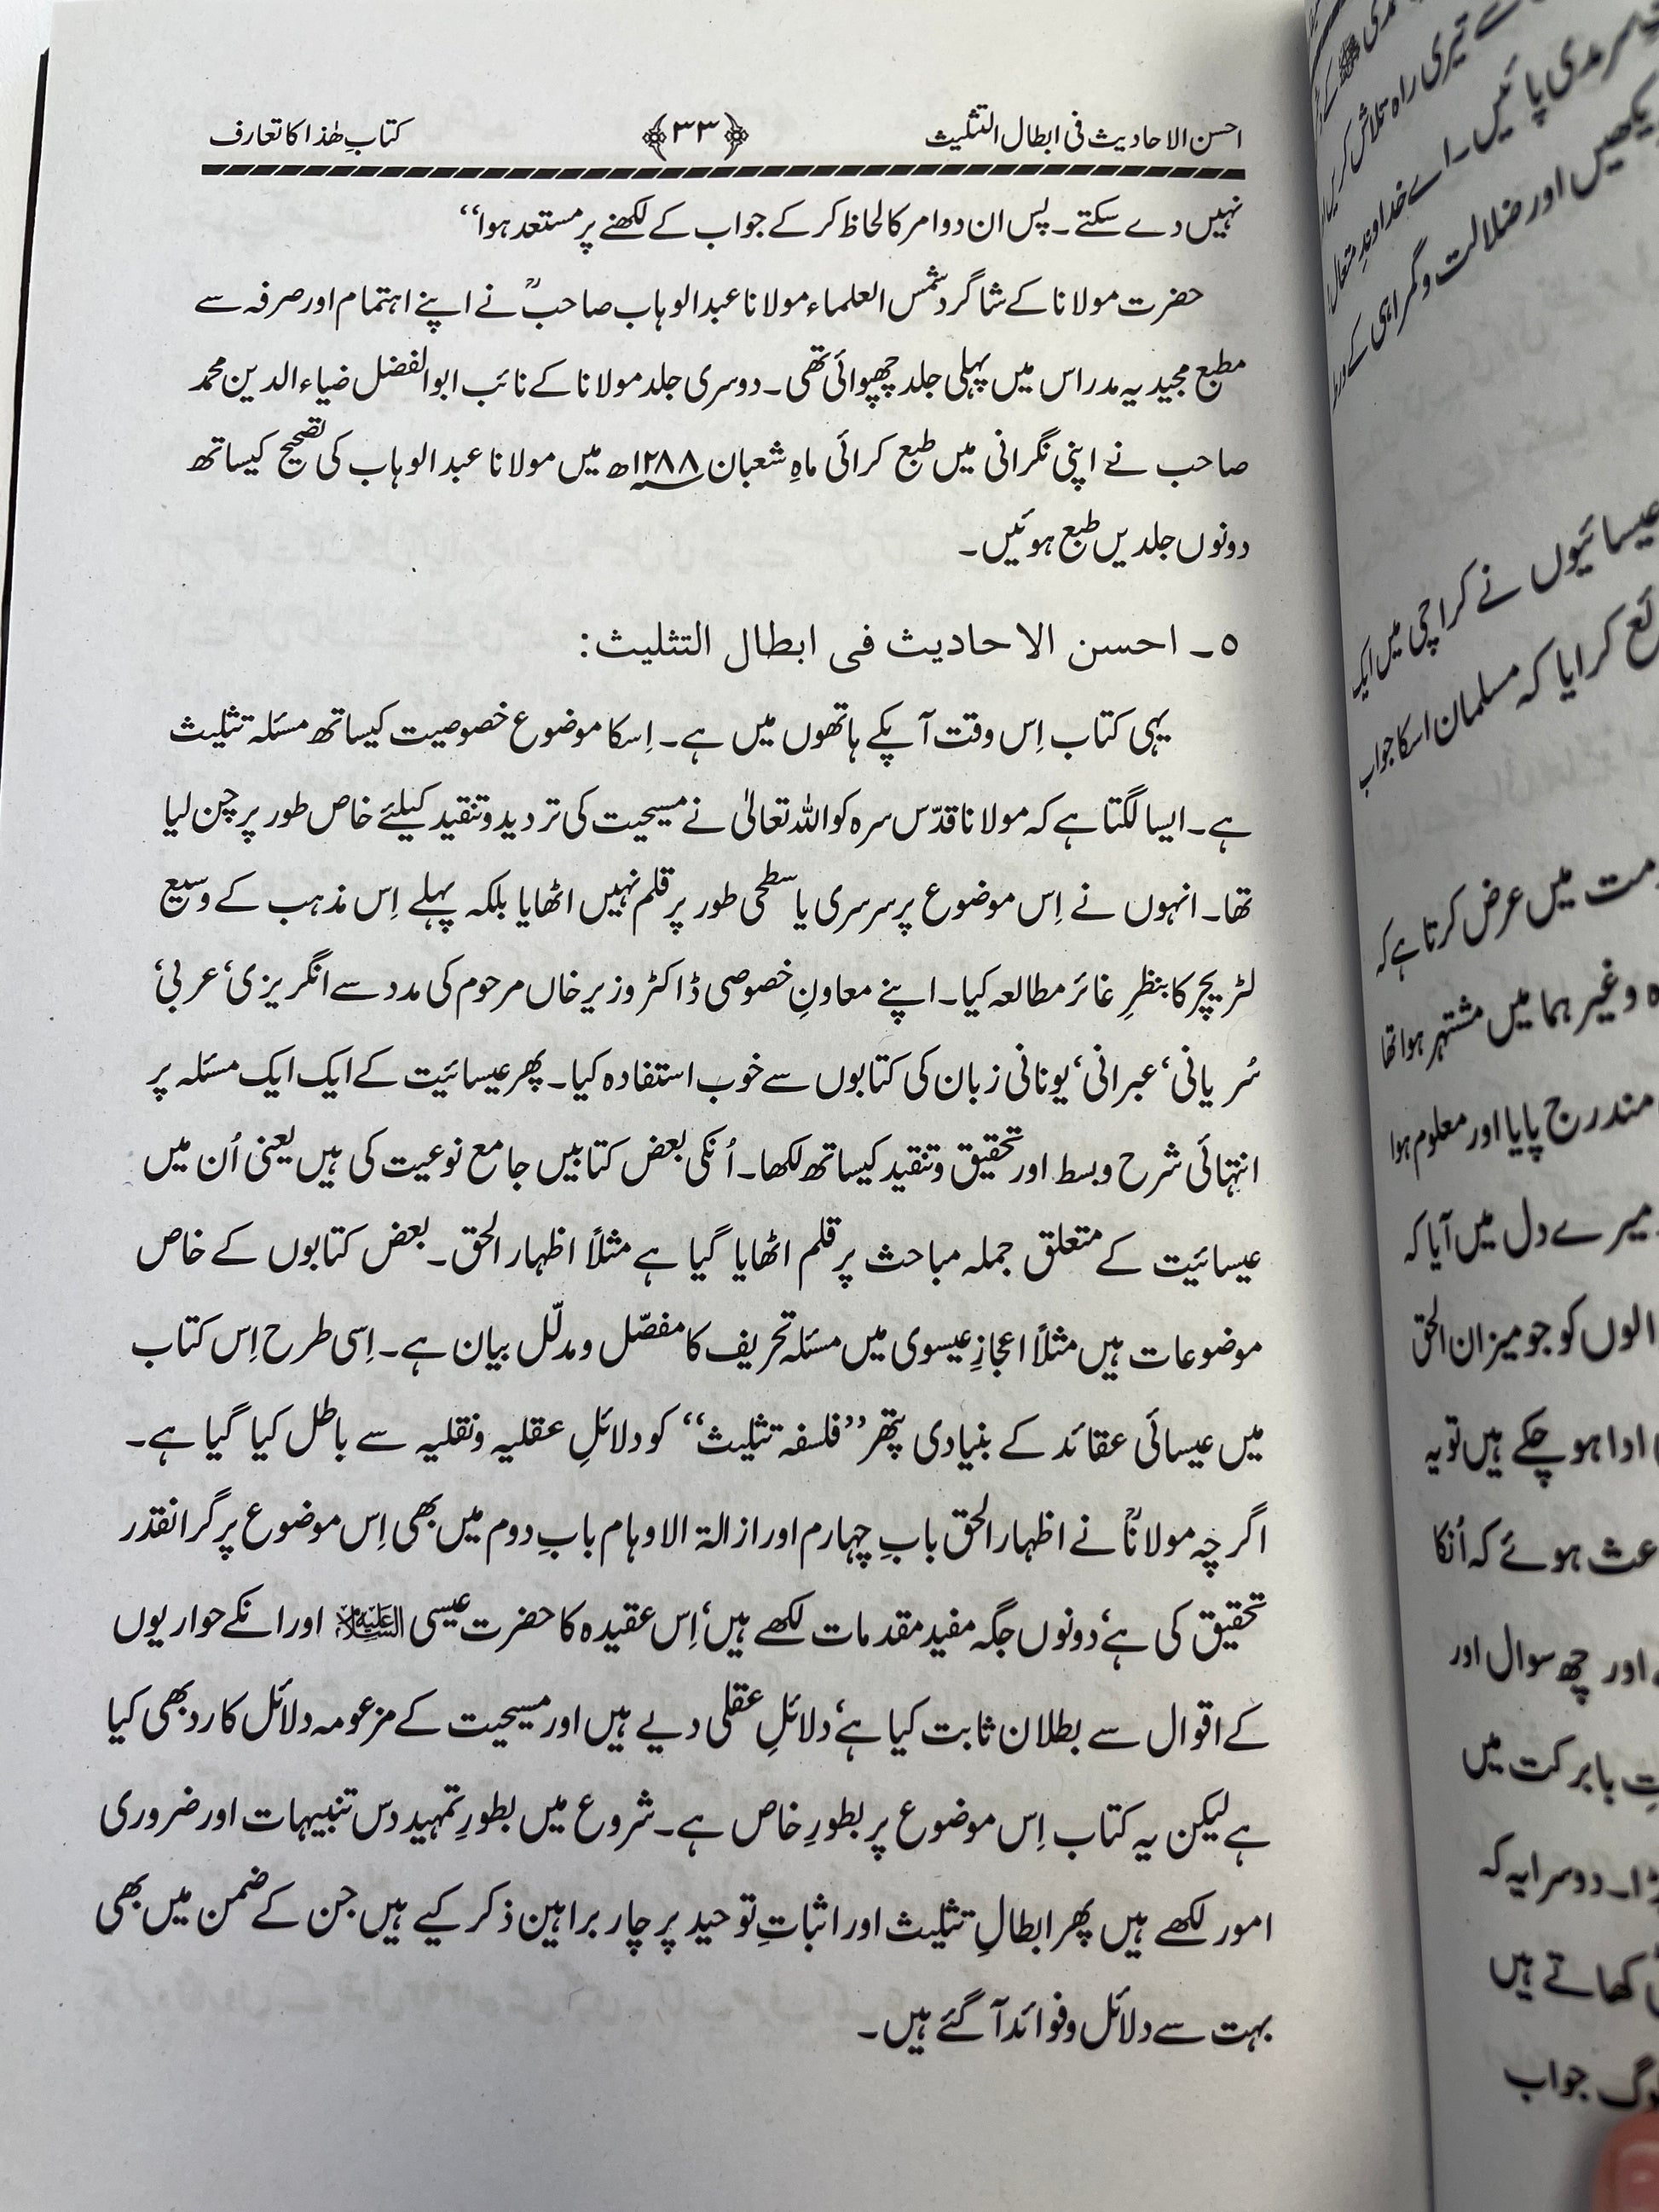 احسن الاحادیث فی ابطال التثلیث ﴿۳۳﴾ کتابِ ھٰذا کا تعارف
نہیں دے سکتے۔ پس ان دو امر کا لحاظ کر کے جواب کے لکھنے پر مستعد ہوا‘‘
حضرت مولانا کے شاگرد شمس العلماء مولانا عبدالوہاب صاحبؒ نے اپنے اہتمام اور صرفہ سے
مطبع مجیدیہ مدراس میں پہلی جلد چھپوائی تھی۔ دوسری جلد مولانا کے نائب ابوالفضل ضیاء الدین محمد
صاحب نے اپنی نگرانی میں طبع کرائی ماہِ شعبان ۱۲۸۸ھ میں مولانا عبدالوہاب کی تصحیح کیساتھ
دونوں جلدیں طبع ہوئیں۔
۵۔ احسن الاحادیث فی ابطال التثلیث:
یہی کتاب اِس وقت آپکے ہاتھوں میں ہے۔ اِسکا موضوع خصوصیت کیساتھ مسئلہ تثلیث
ہے۔ ایسا لگتا ہے کہ مولانا قدّس سرہ کو اللہ تعالیٰ نے مسیحیت کی تردید و تنقید کیلئے خاص طور پر چن لیا
تھا۔ انہوں نے اِس موضوع پر سرسری یا سطحی طور پر قلم نہیں اٹھایا بلکہ پہلے اِس مذہب کے وسیع
لٹریچر کا بنظرِ غائر مطالعہ کیا۔ اپنے معاونِ خصوصی ڈاکٹر وزیر خاں مرحوم کی مدد سے انگریزی‘ عربی‘
سُریانی‘ عبرانی‘ یونانی زبان کی کتابوں سے خوب استفادہ کیا۔ پھر عیسائیت کے ایک ایک مسئلہ پر
انتہائی شرح و بسط اور تحقیق و تنقید کیساتھ لکھا۔ اُنکی بعض کتابیں جامع نوعیت کی ہیں یعنی اُن میں
عیسائیت کے متعلق جملہ مباحث پر قلم اٹھایا گیا ہے مثلاً اظہار الحق۔ بعض کتابوں کے خاص
موضوعات ہیں مثلاً اعجازِ عیسوی میں مسئلہ تحریف کا مفصّل و مدلّل بیان ہے۔ اِسی طرح اِس کتاب
میں عیسائی عقائد کے بنیادی پتھر ’’فلسفہ تثلیث‘‘ کو دلائلِ عقلیہ و نقلیہ سے باطل کیا گیا ہے۔
اگرچہ مولاناؒ نے اظہار الحق بابِ چہارم اور ازالۃ الاوہام بابِ دوم میں بھی اِس موضوع پر گرانقدر
تحقیق کی ہے‘ دونوں جگہ مفید مقدمات لکھے ہیں‘ اِس عقیدہ کا حضرت عیسی علیہ السلام اور انکے حواریوں
کے اقوال سے بطلان ثابت کیا ہے‘ دلائلِ عقلی دیے ہیں اور مسیحیت کے مزعومہ دلائل کا رد بھی کیا
ہے لیکن یہ کتاب اِس موضوع پر بطورِ خاص ہے۔ شروع میں بطورِ تمہید دس تنبیہات اور ضروری
امور لکھے ہیں پھر ابطالِ تثلیث اور اثباتِ توحید پر چار براہین ذکر کیے ہیں جن کے ضمن میں بھی
بہت سے دلائل و فوائد آ گئے ہیں۔
تیری راہ تلاش کریں
سرمدی پائیں۔ اے خداوندِ متعال!
دیکھیں اور ضلالت و گمراہی کے
عیسائیوں نے کراچی میں ایک
کرایا کہ مسلمان اسکا جواب
میں عرض کرتا ہے کہ
وغیرہما میں مشتہر ہوا تھا
مندرج پایا اور معلوم ہوا
میرے دل میں آیا کہ
والوں کو جو میزان الحق
ادا ہو چکے ہیں تو یہ
ہوئے کہ اُنکا
اور چھ سوال اور
بابرکت میں
دوسرا یہ کہ
کھاتے ہیں
جواب